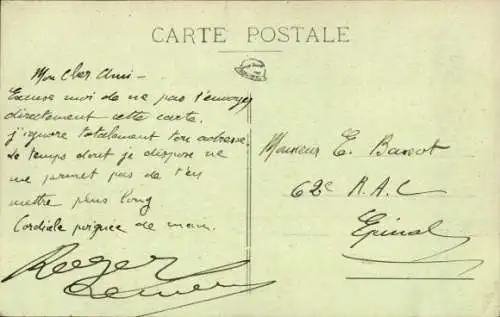 CARTE POSTALE
Mon cher Ami -
Excuse moi de ne pas t'envoyer
directement cette carte.
j'ignore totalement ton adresse.
Le temps dont je dispose ne
me permet pas de t'en
mettre plus long
Cordiale poignée de main.
Roger
Monsieur E. Barot
62e R.A.C
Epinal